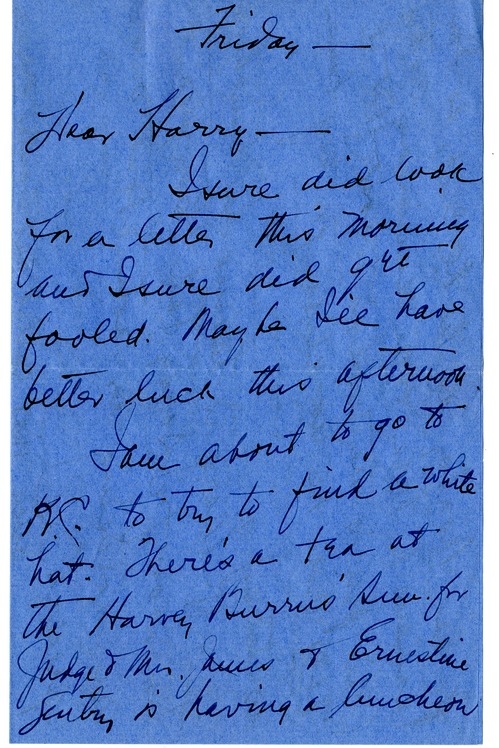 Friday —
Dear Harry —
I sure did look
for a letter this morning
and I sure did get
fooled. Maybe I'll have
better luck this afternoon.
I am about to go to
K.C. to try to find a white
hat. There's a tea at
the Harvey Burrus' Sun. for
Judge & Mrs. James & Ernestine
Gentry is having a luncheon